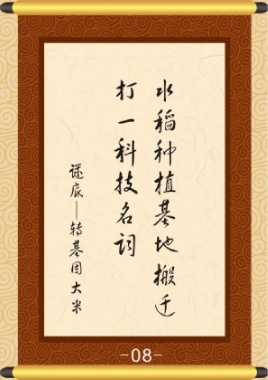 水稻种植基地搬迁
打一科技名词
谜底——转基因大米
-08-